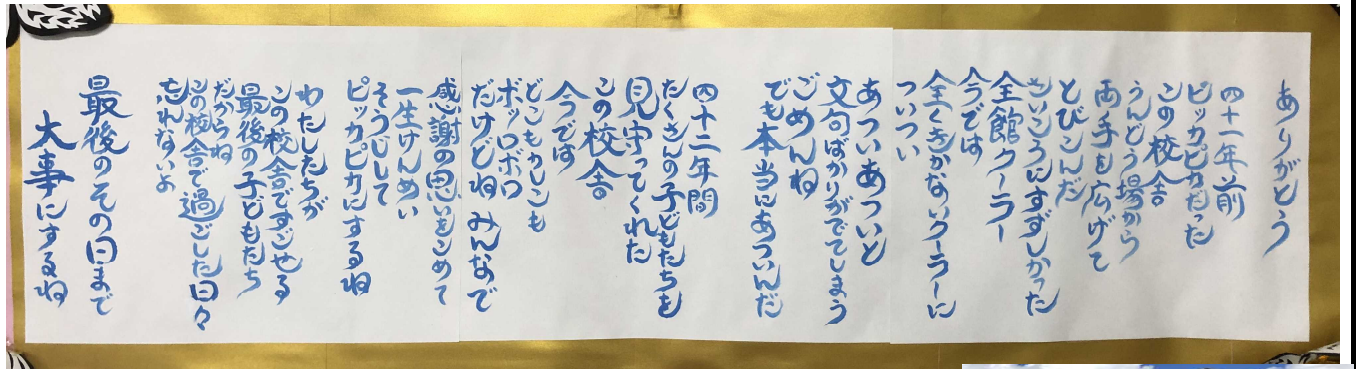 ありがとう
四十二年前
ピッカピカだった
この校舎
うんどう場から
両手を広げて
とびこんだ
さいこうにすずしかった
全館クーラー
今では
全くきかないクーラーに
ついつい
あついあついと
文句ばかりがでてしまう
ごめんね
でも本当にあついんだ
四十二年間
たくさんの子どもたちを
見守ってくれた
この校舎
今では
どこもかしこも
ボッロボロ
だけどね みんなで
感謝の思いをこめて
一生けんめい
そうじして
ピッカピカにするね
わたしたちが
この校舎ですごせる
最後の子どもたち
だからね
この校舎で過ごした日々
忘れないよ
最後のその日まで
大事にするね